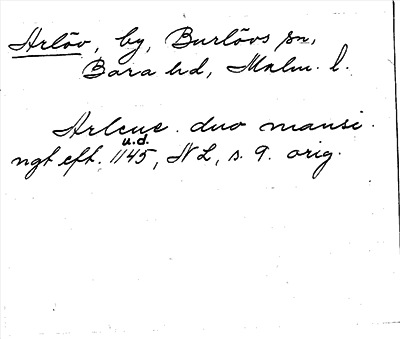 Arlöv, by, Burlövs sn,
Bara hd, Malm. l.
Arleue. duo mansi.
u.d.
ngt eft. 1145, NL, s. 9. orig.